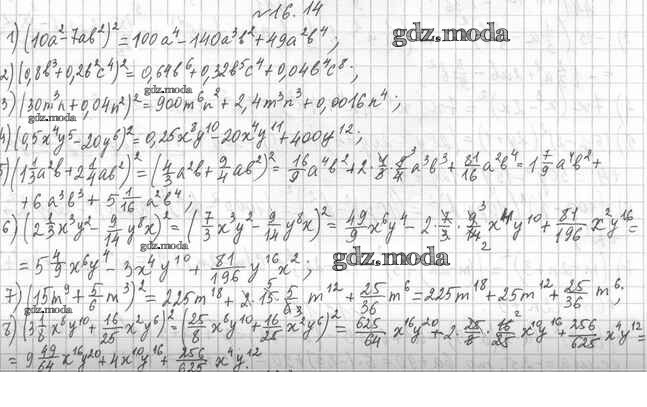 №16.14
1) (10a²-7ab²)² = 100a⁴-140a³b²+49a²b⁴; gdz.moda
2) (0,8b³+0,2b²c⁴)² = 0,64b⁶+0,32b⁵c⁴+0,04b⁴c⁸;
gdz.moda
3) (30m³n+0,04n²)² = 900m⁶n²+2,4m³n³+0,0016n⁴;
gdz.moda
4) (0,5x⁴y⁵-20y⁶)² = 0,25x⁸y¹⁰-20x⁴y¹¹+400y¹²;
5) (1 1/3 a²b+2 1/4 ab²)² = (4/3 a²b+9/4 ab²)² = 16/9 a⁴b²+2· 4/3 · 9/4 ³ a³b³+ 81/16 a²b⁴ = 1 7/9 a⁴b²+
+6a³b³+5 1/16 a²b⁴;
6) (2 1/3 x³y²- 9/14 y⁸x)² = (7/3 x³y²- 9/14 y⁸x)² = 49/9 x⁶y⁴-2· 7/3 · 9³/14₂ x⁴y¹⁰+ 81/196 x²y¹⁶ =
gdz.moda
= 5 4/9 x⁶y⁴-3x⁴y¹⁰+ 81/196 y¹⁶x²; gdz.moda
7) (15m⁹+ 5/6 m³)² = 225m¹⁸+2·15· 5/6 m¹²+ 25/36 m⁶ = 225m¹⁸+25m¹²+ 25/36 m⁶;
gdz.moda
8) (3 1/8 x⁸y¹⁰+ 16/25 x²y⁶)² = (25/8 x⁸y¹⁰+ 16/25 x²y⁶)² = 625/64 x¹⁶y²⁰+2· 25/8 · 16²/25 x¹⁰y¹⁶+ 256/625 x⁴y¹² =
= 9 49/64 x¹⁶y²⁰+4x¹⁰y¹⁶+ 256/625 x⁴y¹².